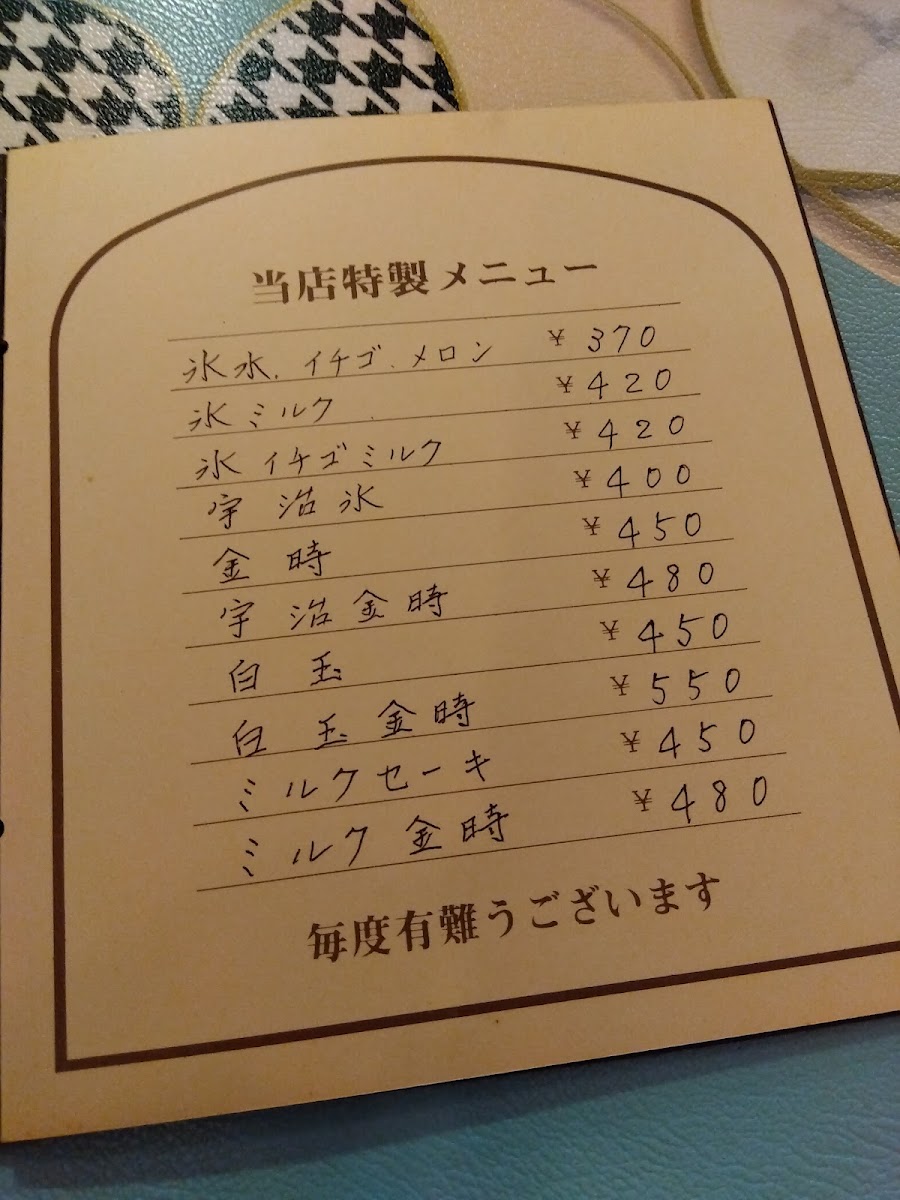 当店特製メニュー
氷水.イチゴ.メロン ¥370
氷ミルク ¥420
氷イチゴミルク ¥420
宇治氷 ¥400
金時 ¥450
宇治金時 ¥480
白玉 ¥450
白玉金時 ¥550
ミルクセーキ ¥450
ミルク金時 ¥480
毎度有難うございます